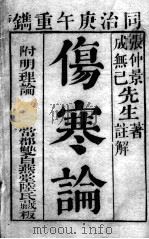 同治庚午重鐫
張仲景
成無己
先生
著
註解
傷寒論
附明理論
常郡雙白燕堂陸氏藏板
mtoou.info